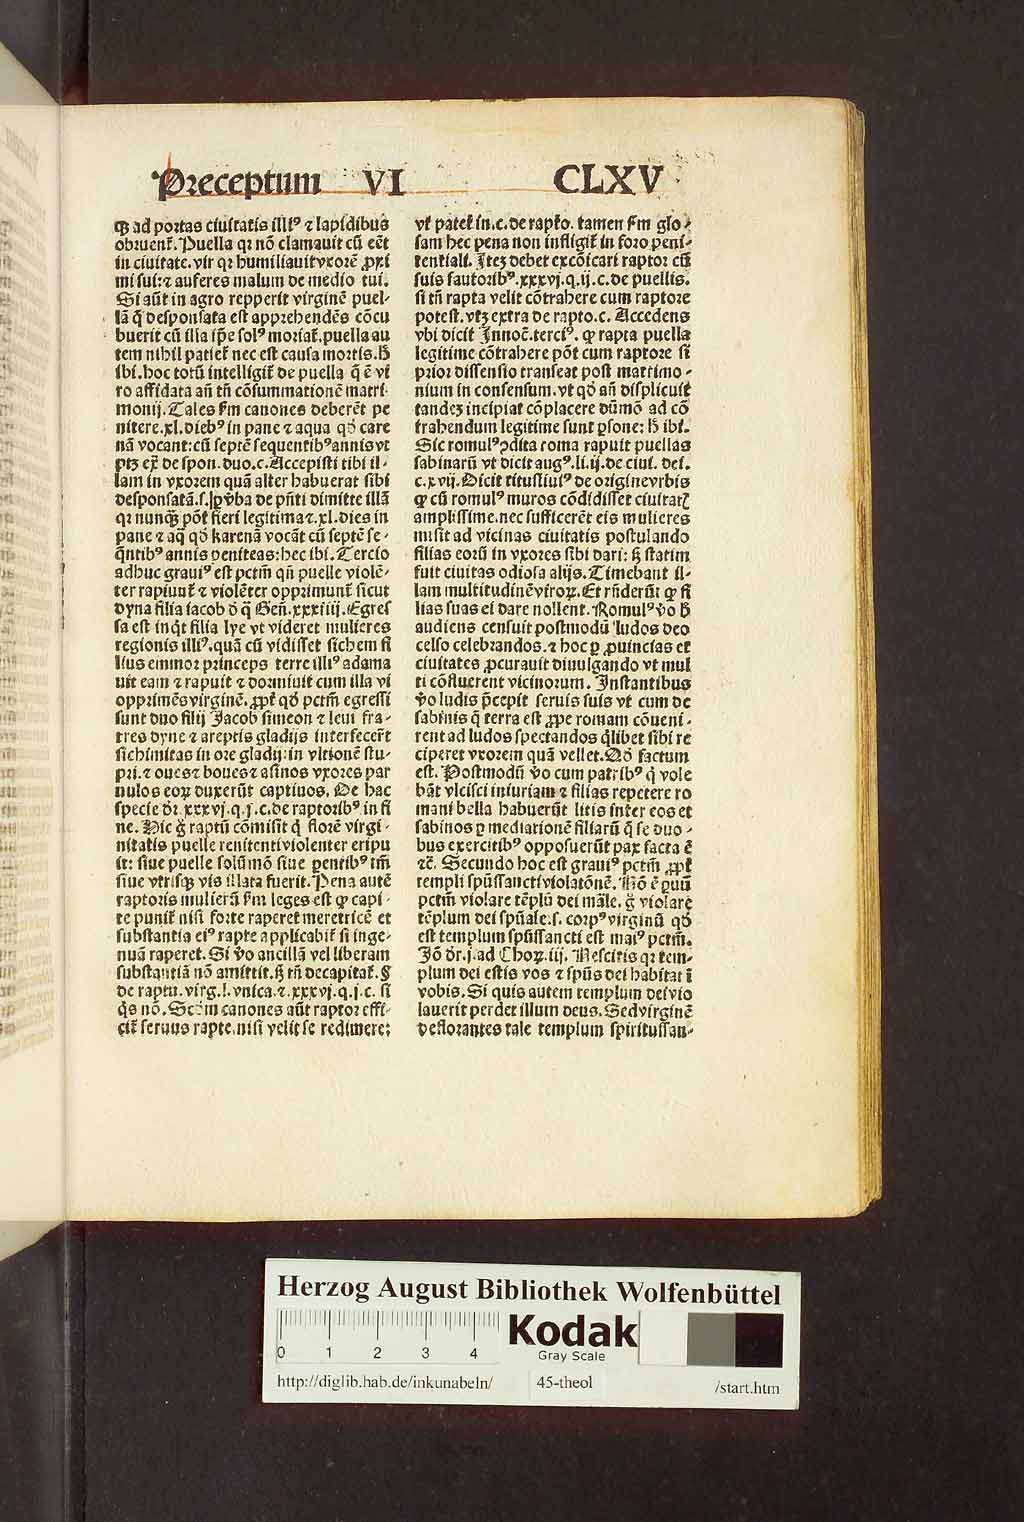 Preceptum VI CLXV
qꝫ ad portas ciuitatis illiꝰ ⁊ lapidibus
obruent᷑. Puella qꝛ nō clamauit cū eēt
in ciuitate. vir qꝛ humiliauit vxorē ꝓxi
mi sui: ⁊ auferes malum de medio tui.
Si aūt in agro reppeꝛit virginē puel-
lā q̄ desponsata est apprehendēs cōcu
buerit cū illa ip̄e solꝰ moriat᷑. puella au
tem nihil patiet᷑ nec est causa mortis. h̄
ibi. hoc totū intelligit᷑ de puella q̄ ē vi
ro affidata an̄ tn̄ cōsummationē matri
monij. Tales fm canones deberēt pe
nitere .xl. diebꝰ in pane ⁊ aqua qd̄ care
nā vocant: cū septē sequentibꝰ annis vt
ptꝫ ex̄ de spon. duo. c. Accepisti tibi il-
lam in vxorem quā alter habuerat sibi
desponsatā. s. ꝑ v̄ba de pn̄ti dimitte illā
qꝛ nunqꝫ pōt fieri legitima ⁊ .xl. dies in
pane ⁊ aq̄ qd̄ karenā vocāt cū septē se-
q̄ntibꝰ annis peniteas: hec ibi. Tercio
adhuc grauiꝰ est pctm̄ qn̄ puelle violē-
ter rapiunt᷑ ⁊ violēter opprimunt᷑ sicut
dyna filia iacob d̄ q̄ Gen̄. xxxiiij. Egres
sa est inq̇t filia lye vt videret mulieres
regionis illiꝰ. quā cū vidisset sichem fi
lius emmor princeps terre illiꝰ adama
uit eam ⁊ rapuit ⁊ dormiuit cum illa vi
opprimēs virginē. ꝓpt᷑ qd̄ pctm̄ egressi
sunt duo filij Jacob simeon ⁊ leui fra-
tres dyne ⁊ areptis gladijs interfecer̄t
sichimitas in ore gladij: in vltionē stu-
pri. ⁊ oues ⁊ boues ⁊ asinos vxores par
uulos eoꝝ duxerūt captiuos. De hac
specie dr̄. xxxvj. q. j. c. de raptoribꝰ in fi
ne. Hic ḡ raptū cōmisit q̇ florē virgi-
nitatis puelle renitenti violenter eripu
it: siue puelle solūmō siue ꝑentibꝰ tm̄
siue vtrisqꝫ vis illata fuerit. Pena autē
raptoris mulierū fm leges est ꝙ capi-
te punit᷑ nisi forte raperet meretricē et
substantia eiꝰ rapte applicabit᷑ si inge-
nuā raperet. Si v̄o ancillā vel liberam
substantiā nō amittit. sꝫ tn̄ decapitat᷑. §
de raptu. virg. l. vnica. ⁊. xxxvj. q. j. c. si
q̇s nō. Scd̄m canones aūt raptor effi-
cit᷑ seruus rapte. nisi velit se redimere:
vt patet in. c. de rapto. tamen fm glo-
sam hec pena non infligit᷑ in foro peni-
tentiali. Itez debet excōicari raptor cū
suis fautoribꝰ. xxxvj. q. ij. c. de puellis.
si tn̄ rapta velit cōtrahere cum raptore
potest. vtꝫ extra de rapto. c. Accedens
vbi dicit Innoc̄. terciꝰ. ꝙ rapta puella
legitime cōtrahere pōt cum raptore si
prior dissensio transeat post matrimo-
nium in consensum. vt qd̄ an̄ displicuit
tandeꝫ incipiat cōplacere dūmō ad cō
trahendum legitime sunt ꝑsone: h̄ ibi.
Sic romulꝰ ꝯdita roma rapuit puellas
sabinarū vt dicit augꝰ. li. ij. de ciui. dei.
c. xvij. Dicit titusliuiꝰ de origine vrbis
ꝙ cū romulꝰ muros cōdidisset ciuitatꝭ
amplissime. nec sufficerēt eis mulieres
misit ad vicinas ciuitatis postulando
filias eorū in vxores sibi dari: sꝫ statim
fuit ciuitas odiosa alijs. Timebant il-
lam multitudinē viroꝝ. Et rn̄derūt ꝙ fi
lias suas ei dare nollent. Romulꝰ v̄o h̄
audiens censuit postmodū ludos deo
celso celebrandos. ⁊ hoc ꝑ ꝓuincias et
ciuitates ꝓcurauit diuulgando vt mul
ti cōfluerent vicinorum. Instantibus
v̄o ludis p̄cepit seruis suis vt cum de
sabinis q̄ terra est ꝓpe romam cōueni-
rent ad ludos spectandos q̇libet sibi re
ciperet vxorem quā vellet. Qd̄ factum
est. Postmodū v̄o cum patribꝰ q̇ vole
bāt vlcisci iniuriam ⁊ filias repetere ro
mani bella habuerūt litis inter eos et
sabinos ꝑ mediationē filiarū q̄ se duo-
bus exercitibꝰ opposuerūt pax facta ē
⁊c̄. Secundo hoc est grauiꝰ pctm̄ ꝓpt᷑
templi spūssancti violatōnē. Nō ē ꝑuū
pctm̄ violare tēplū dei māle. ḡ violare
tēplum dei spūale. s. corpꝰ virginū qd̄
est templum spūssancti est maiꝰ pctm̄.
Jō dr̄. j. ad Choꝝ. iij. Nescitis qꝛ tem-
plum dei estis vos ⁊ spūs dei habitat ī
vobis. Si quis autem templum dei vio
lauerit perdet illum deus. Sed virginē
deflorantes tale templum spiritussan-
Herzog August Bibliothek Wolfenbüttel
0 1 2 3 4
Kodak
Gray Scale
http://diglib.hab.de/inkunabeln/ 45-theol /start.htm